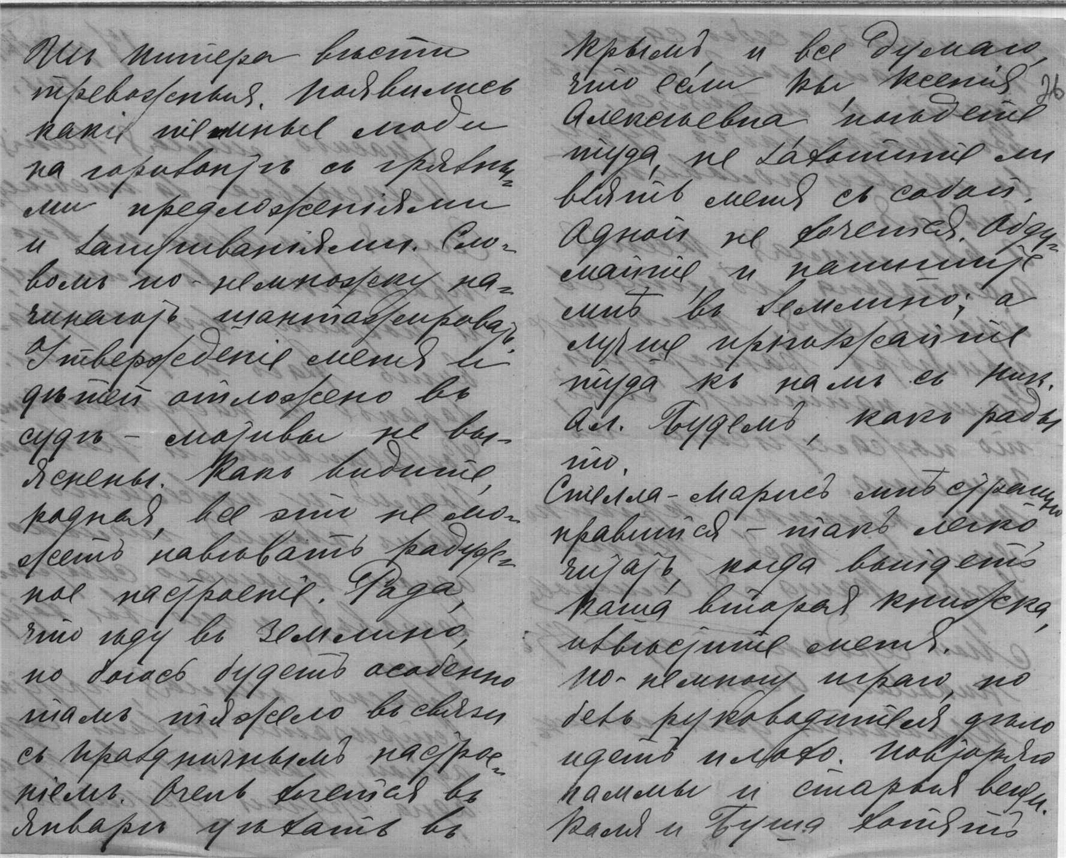 Изъ Питера вѣсти
тревожныя. Появились
какіе тёмные люди
на горизонтѣ съ грязны-
ми предложеніями
и запугиваніями. Сло-
вомъ по-немножку на-
чинаютъ шантажировать.
Утвержденіе меня и
дѣтей отложено въ
судѣ – мотивы не вы-
яснены. Какъ видите,
родная, все это не мо-
жетъ навѣвать радуж-
ное настроеніе. Рада,
что ѣду въ Земмино,
но боюсь будетъ особенно
тамъ тяжело въ связи
съ праздничнымъ настрое-
ніемъ. Очень хочется въ
январѣ уѣхать въ
Крымъ, и все думаю,
что если Вы, Ксенія
26
Алексѣевна, поѣдете
туда, не захотите ли
взять меня съ собой.
Одной не хочется. Обду-
майте и напишите
мнѣ въ Земмино; а
лучше пріѣзжайте
туда къ намъ съ Ник.
Ал. Будемъ, какъ рады
то.
Стелла-Марисъ мнѣ страшно
нравится – такъ легко
читать, когда выйдетъ
Ваша вторая книжка,
извѣстите меня.
По-немногу играю, но
безъ руководителя дѣло
идетъ плохо. Повторяю
гаммы и старыя вещи.
Валя и Буша хотятъ